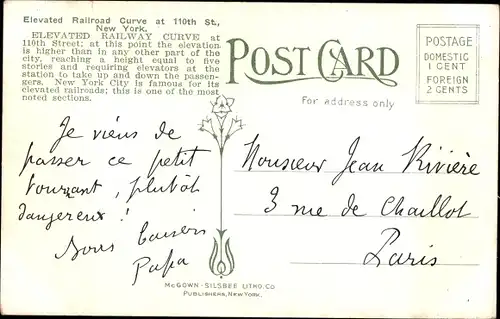 Elevated Railroad Curve at 110th St.,
New York.
ELEVATED RAILWAY CURVE at
116th Street; at this point the elevation
is higher than in any other part of the
city, reaching a height equal to five
stories and requiring elevators at the
station to take up and down the passen-
gers. New York City is famous for its
elevated railroads; this is one of the most
noted sections.
POST CARD
For address only
POSTAGE
DOMESTIC
1 CENT
FOREIGN
2 CENTS
Je viens de
passer ce petit
tournant, plutôt
dangereux !
Bons baisers
Papa
Monsieur Jean Rivière
3 rue de Chaillot
Paris
McGOWN-SILSBEE LITHO. CO
PUBLISHERS, NEW YORK.